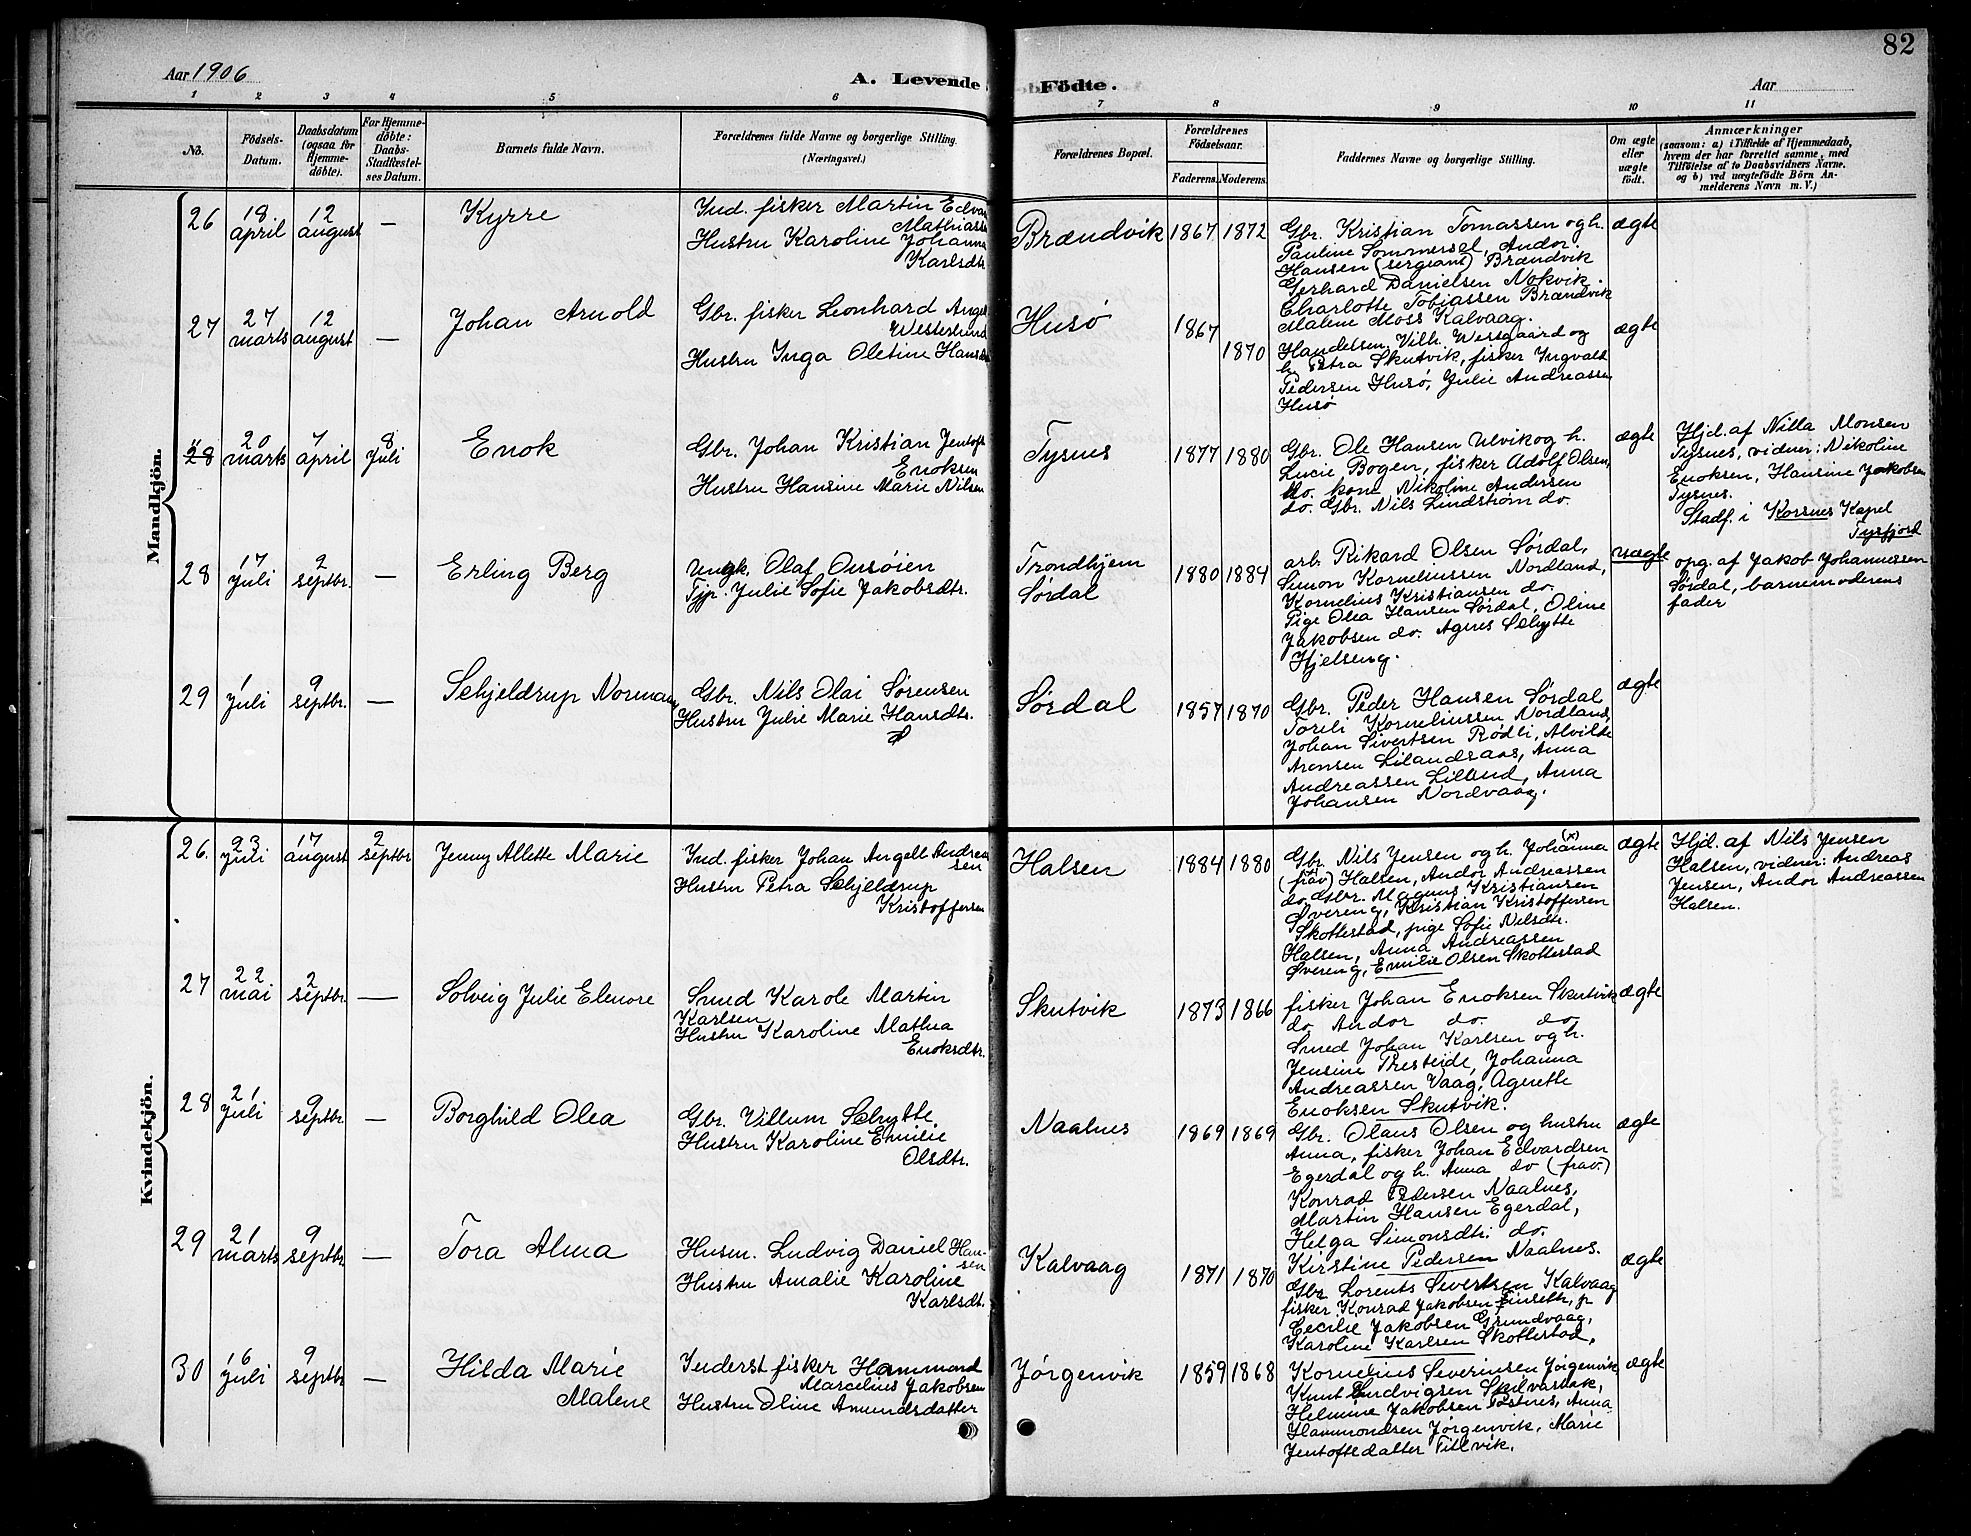 82
Aar 1906
A. Levende
Födte.
Aar
1 2 3 4 5 6 7 8 9 10 11
No.
Födsels-
Datum.
Daabsdatum
(ogsaa for
Hjemme-
döbte).
For Hjemme-
döbte:
Daabs-
Stadfæstel-
ses Datum.
Barnets fulde Navn.
Forældrenes fulde Navne og borgerlige Stilling.
(Næringsvei.)
Forældrenes Bopæl.
Forældrenes
Födselsaar.
Faderens. Moderens.
Faddernes Navne og borgerlige Stilling.
Om ægte
eller
uægte
födt.
Anmærkninger
(saasom: a) i Tilfælde af Hjemmedaab,
hvem der har forrettet samme, med
Tilföielse af to Daabsvidners Navne.
og b) ved uægtefödte Börn An-
melderens Navn m. V.)
Mandkjön.
26
18
april
12
august
—
Kyrre
Ind. fisker Martin Edva
Mathiass
Hustru Karoline Johanna
Karlsdtr
Brændvik
1867
1872
Gbr. Kristian Tomassen og h.
Pauline Sommersel, Andor
Hansen (sergeant) Brændvik
Gerhard Danielsen Nokvik
Charlotte Tobiassen Brændvik
Malene Moss Kalvaag.
ægte
27
27
marts
12
august
—
Johan Arnold
Gbr. fisker Leonhard Angel
Westerlund
Hustru Inga Oletine Hans
Husö
1867
1870
Handelsm. Vilh. Westgaard og
h. Petra Skutvik, fisker Ingvald
Pedersen Husö, Julie Andreassen
Husö
ægte
28
20
marts
7
april
8
juli
Enok
Gbr. Johan Kristian Jentoft
Enoksen
Hustru Hansine Marie Nilsen
Tysnes
1877
1880
Gbr. Ole Hansen Ulvik og h.
Lucie Bogen, fisker Adolf Olsen,
do. kone Nikoline Andersen
do. Gbr. Nils Lindström do.
ægte
Hjd. af Nilla Monsen
Tysnes, vidner: Nikoline
Enoksen, Hansine Jakobsen
Tysnes.
Stadf. i Korsnes Kapel
Tysfjord
28
17
juli
2
septbr.
—
Erling Berg
Ungk. Olaf Onsöien
Tjp. Julie Sofie Jakobsdtr.
Trondhjem
Sördal
1880
1884
arb. Rikard Olsen Sördal,
Simon Korneliussen Nordland,
Kornelius Kristiansen do.
Pige Olea Hansen Sördal, Oline
Jakobsen do. Agnes Schytte
Hjelseng.
uægte
opg. af Jakob Johannessen
Sördal, barnemoderens
fader
29
1
juli
9
septbr.
—
Schjeldrup Norman
Gbr. Nils Olai Sørensen
Hustru Julie Marie Hansdtr.
Sördal
1857
1870
Gbr. Peder Hansen Sördal
Toreli Korneliussen Nordland,
Johan Sivertsen Rödli, Alvilde
Aronsen Lilandsaas, Anna
Andreassen Lilland, Anna
Johansen Nordvaag.
ægte
Kvindekjön.
26.
23
juli
17
august
2
septbr
Jenny Allette Marie
Ind. fisker Johan Angell Andrea
sen
Hustru Petra Schjeldrup
Kristoffersen
Halsen
1884
1880
Gbr. Nils Jensen og h. Johanna (x)
(frav) Halsen, Andor Andreassen
do. Gbr. Magnus Kristiansen
Övereng, Kristian Kristoffersen
Skottestad, pige Sofie Nilsdtr.
Halsen, Anna Andreassen
Övereng, Emilie Olsen Skottestad
ægte
Hjd. af Nils Jensen
Halsen, vidner: Andreas
Jensen, Andor Andreassen
Halsen.
27
22
mai
2
septbr
—
Solveig Julie Elenore
Smed Karole Martin
Karlsen
Hustru Karoline Mathea
Enoksdtr.
Skutvik
1873
1866
fisker Johan Enoksen Skutvik
do. Andor do. do
Smed Johan Karlsen og h.
Jensine Presteide, Johanna
Andreassen Vaag, Agnethe
Enoksen Skutvik.
ægte
28
21
juli
9
septbr
—
Borghild Olea
Gbr. Villum Schytte.
Hustru Karoline Emilie
Olsdtr.
Naalnes
1869
1869
Gbr. Olaus Olsen og hustru
Anna, fisker Johan Edvardsen
Egerdal og h. Anna do (frav)
Konrad Pedersen Naalnes,
Martin Hansen Egerdal,
Helga Simonsdtr. do.
Kirstine Pedersen Naalnes.
ægte
29
21
marts
9
septbr
—
Tora Alma
Husm. Ludvig Daniel Han-
sen
Hustru Amalie Karoline
Karlsdt.
Kalvaag
1871
1870
Gbr Lorents Severtsen Kalvaag
fisker Konrad Jakobsen Finseth, p
Cecilie Jakobsen Grundvaag,
Karoline Karlsen Skottestad,
ægte
30
16
juli
9
septbr
—
Hilda Marie
Malene
Inderst fisker Hammond
Marcelius Jakobsen
Hustru Oline Amundsdatter
Jörgenvik
1859
1868
Kornelius Severinsen Jörgenvik
Knut Ludvigsen Skilvasbak,
Helmine Jakobsen Tostnes, Anna
Hammondsen Jörgenvik, Marie
Jentoftedatter Tillvik.
ægte